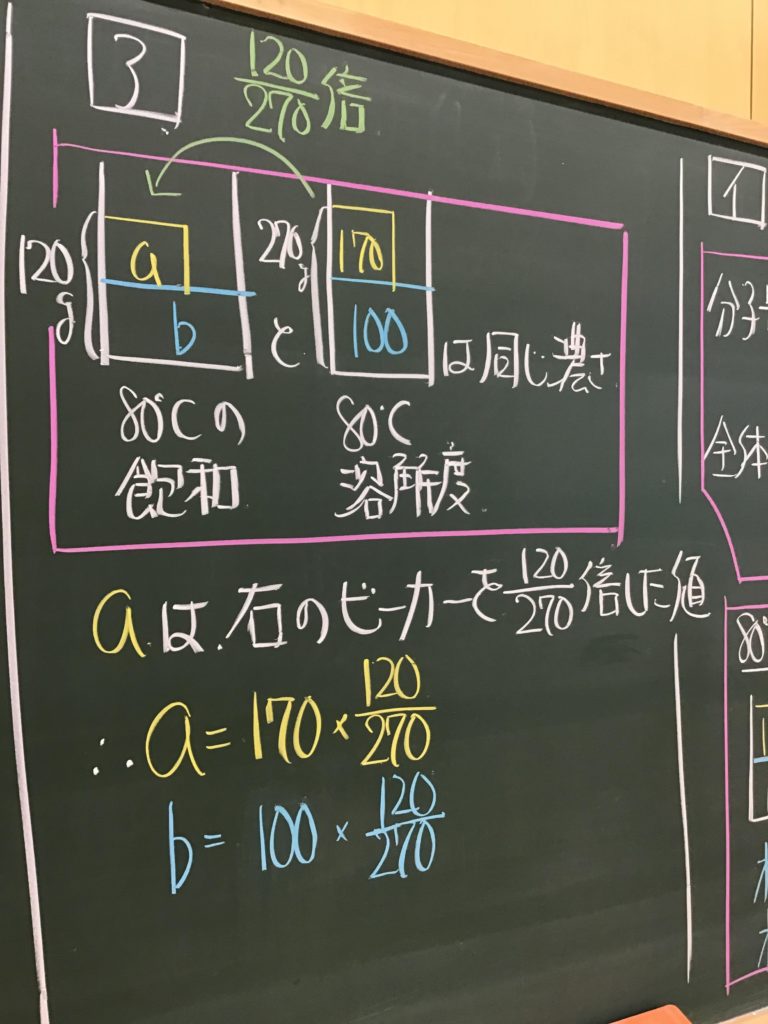 3
120/270倍
120g
a
b
と
270g
170
100
は同じ濃さ
80℃の
飽和
80℃
溶解度
aは、右のビーカーを120/270倍した値
∴ a = 170 × 120/270
b = 100 × 120/270
イ
分子
全体
80°